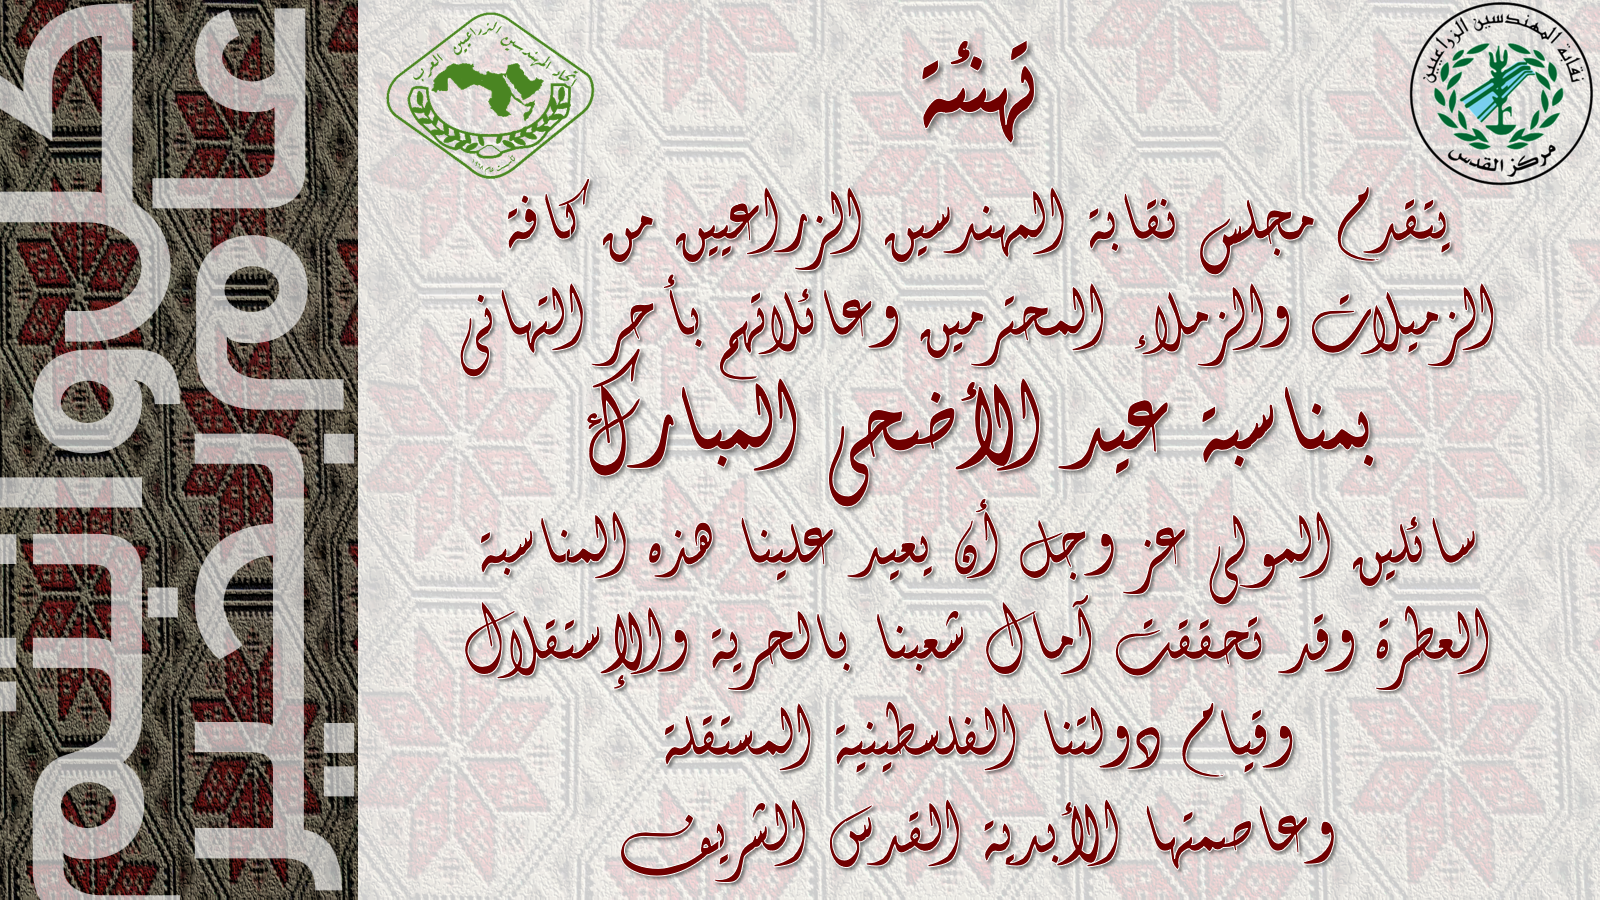 تهنئة
يتقدم مجلس نقابة المهندسين الزراعيين من كافة
الزميلات والزملاء المحترمين وعائلاتهم بأحر التهانى
بمناسبة عيد الأضحى المبارك
سائلين المولى عز وجل أن يعيد علينا هذه المناسبة
العطرة وقد تحققت آمال شعبنا بالحرية والإستقلال
وقيام دولتنا الفلسطينية المستقلة
وعاصمتها الأبدية القدس الشريف
نقابة المهندسين الزراعيين
مركز القدس
اتحاد المهندسين الزراعيين العرب
تأسست عام ١٩٦٨
كل عام وانتم بخير